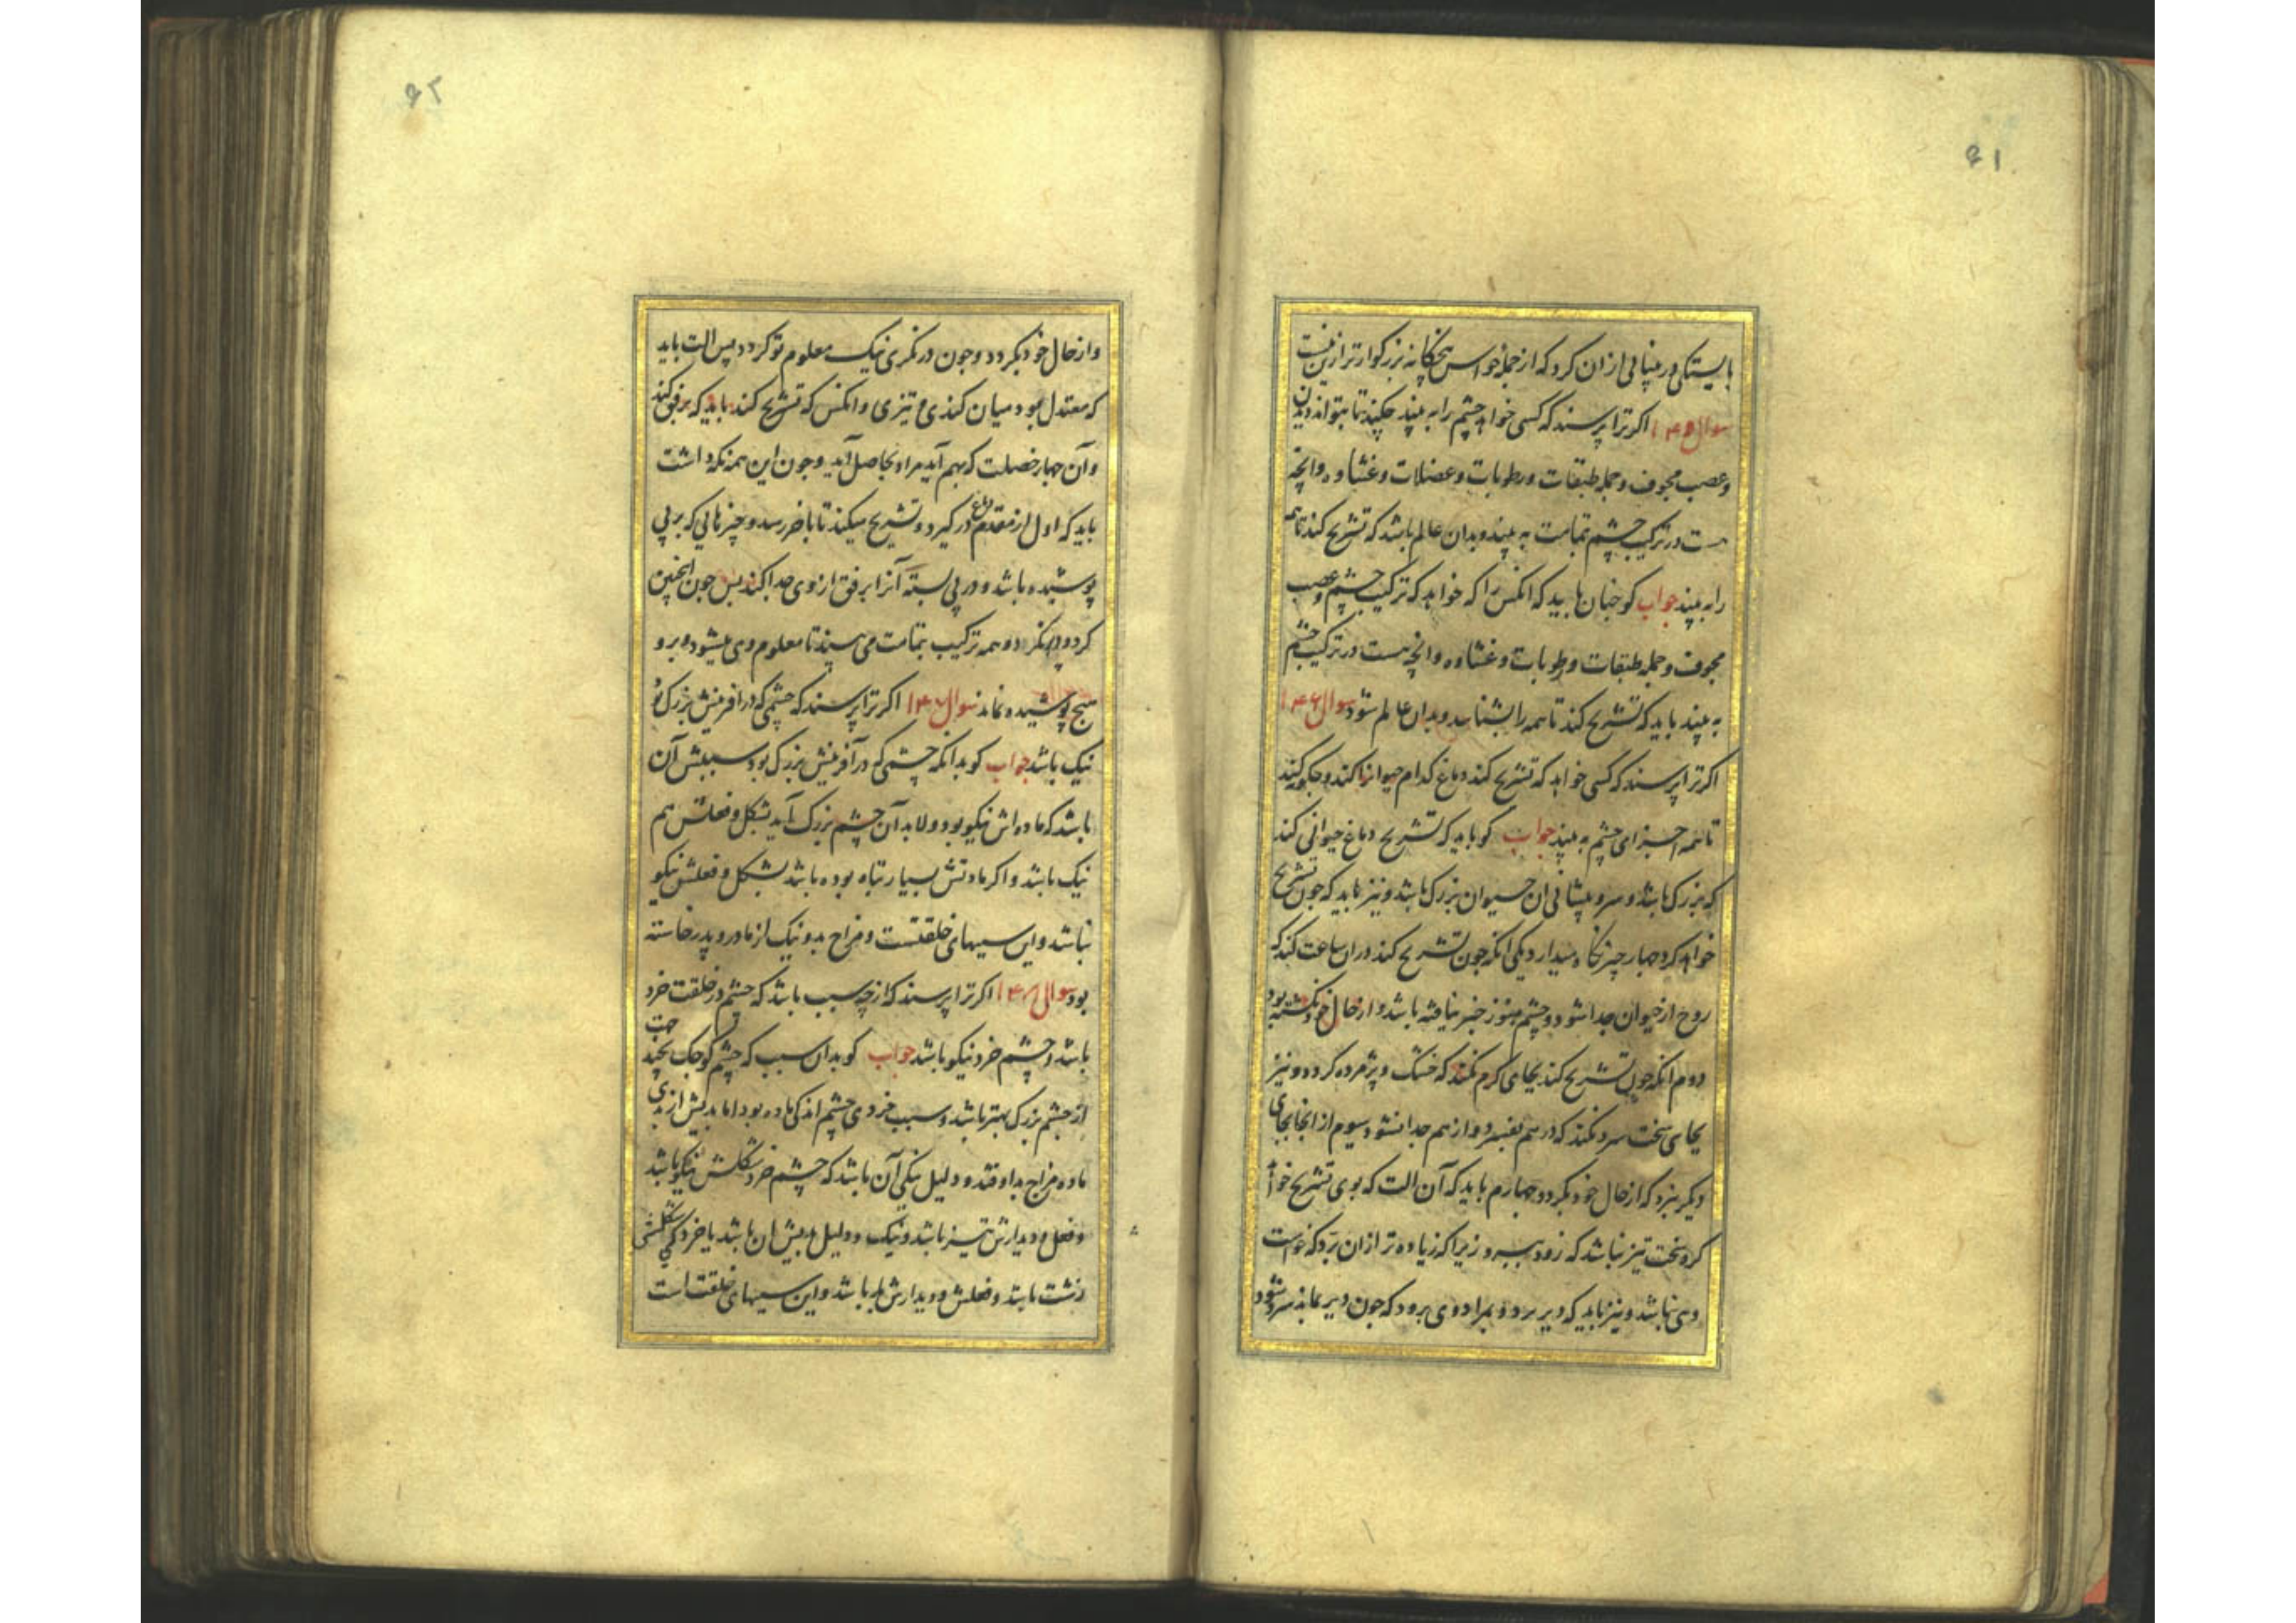 ۶۱
بایستکی در بینایی ازان کرد که از جمله حواس پنجکانه بزرکوارتر ازین نیست
سوال ۱۴۵ اکر ترا پرسند که کسی خواهد چشم را به بیند چکند تا بتواند دیدن
وعصب مجوف و جمله طبقات ورطوبات وعضلات وغشاوه وانچه
هست در ترکیب چشم تمامت به بیند وبدان عالم باشد که تشریح کند تا همه
را به بیند جواب کو چنان باید که انکس را که خواهد که ترکیب چشم وعصب
مجوف وجمله طبقات ورطوبات وغشاوه وانچه هست در ترکیب چشم
به بیند باید که تشریح کند تا همه را بشناسد وبدان عالم شود سوال ۱۴۶
اکر ترا پرسند که کسی خواهد که تشریح کند دماغ کدام حیوانرا کند وچکونه کند
تا همه اجزای چشم به بیند جواب کو باید که تشریح دماغ حیوانی کند
که بزرک باشد وسر وپیشانی ان حیوان بزرک باشد ونیز باید که چون تشریح
خواهد کرد چهار چیز نکاه میدارد یکی انکه چون تشریح کند دران ساعت کند که
روح از حیوان جدا شود وچشم هنوز خبر نیافته باشد و از حال خود نکشته بود
دوم انکه چون تشریح کند بجای کرم نکند که خشک و پژمرده کردد ونیز
بجای سخت سرد نکند که در هم بفسرد و از هم جدا نشود سیوم از انجا بجای
دیکر نبرد که از حال خود بکردد چهارم باید که آن الت که بوی تشریح خواهد
کرد سخت تیز نباشد که زود ببرد زیرا که زیاده تر ازان برد که خواست
وی باشد ونیز نباید که دیر برد و بمراد وی برود که چون دیر بماند سرد شود
۶۲
و از حال خود بکردد و چون در نکری نیک معلوم تو کردد پس الت باید
که معتدل بود میان کندی و تیزی وانکس که تشریح کند باید که برفق کند
وآن چهار خصلت که بهم آید مراد بحاصل آید و چون این همه نکه داشت
باید که اول از مقدم دماغ در کیرد و تشریح میکند تا باخر رسد و چیزهایی که بر پی
پوشیده باشد و در پی بسته آنرا برفق از وی جدا کند پس چون انچنین
کرد ومی‌نکرد و همه ترکیب تمامت می بیند تا معلوم وی میشود و برو
هیچ پوشیده نماند سوال ۱۴۷ اکر ترا پرسند که چشمی که در افرینش بزرک بود
نیک باشد جواب کو بدانکه چشمی که در آفرینش بزرک بود سببش آن
باشد که ماده اش نیکو بود ولابد آن چشم بزرک آید بشکل وفعلش هم
نیک باشد و اکر مادتش بسیار تباه بوده باشد بشکل وفعلش نیکو
نباشد واین سببهای خلقتست ومزاج بد ونیک از مادر و پدر خاسته
بود سوال ۱۴۸ اکر ترا پرسند که از چه سبب باشد که چشم در خلقت خرد
باشد و چشم خرد نیکو باشد جواب کو بدان سبب که چشم کوچک بچند جهت
از چشم بزرک بهتر باشد وسبب خردی چشم اندکی ماده بود اما بدیش از بدی
ماده مزاج بد اوفتد و دلیل نیکی آن باشد که چشم خرد شکلش نیکو باشد
وفعل و دیدارش تیز باشد و نیک و دلیل بدیش ان باشد با خردکی شکلش
زشت باشد وفعلش ودیدارش بد باشد واین سببهای خلقت است